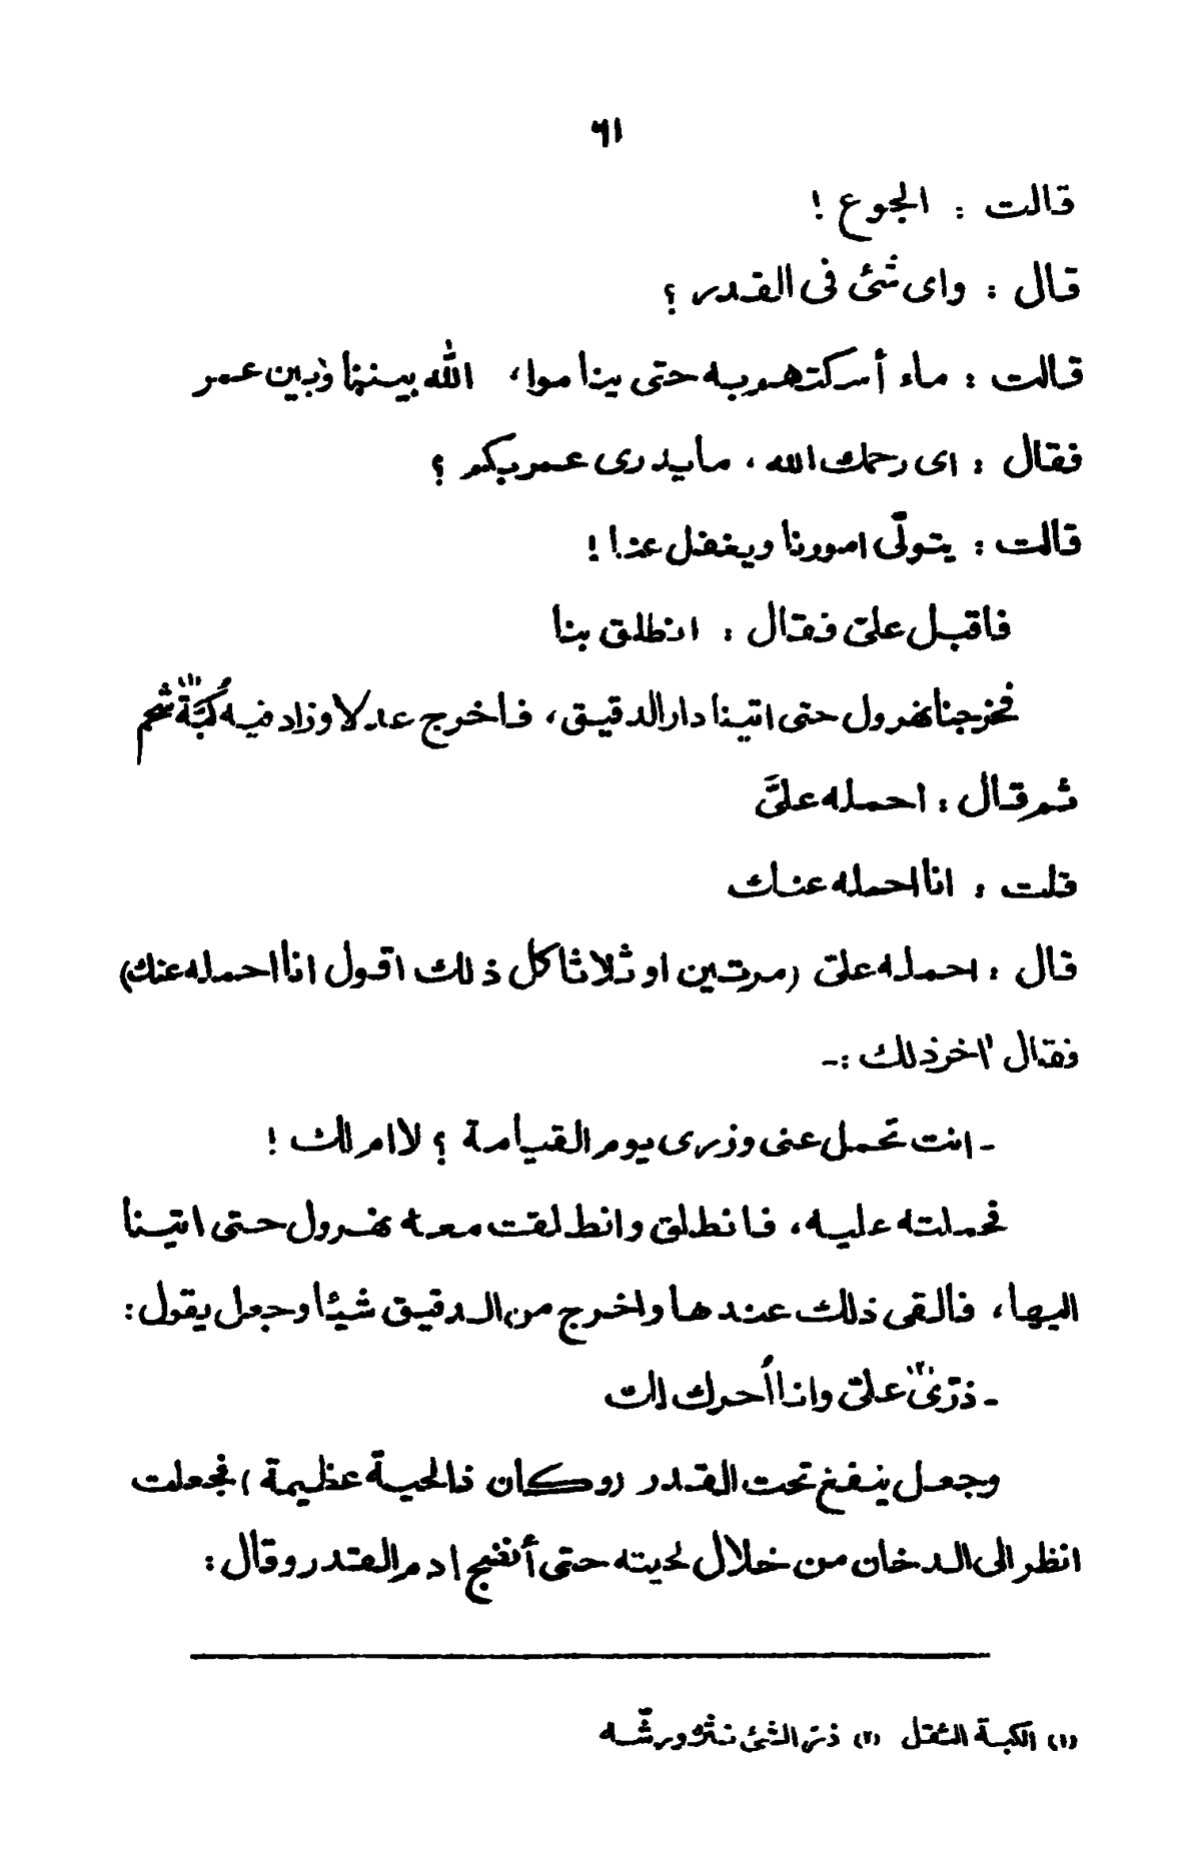 ٦١
قالت : الجوع !
قال : واى شئ فى القدر ؟
قالت : ماء أسكتهم به حتى يناموا ، الله بيننا وبين عمر
فقال : اى رحمك الله ، مايدرى عمر بكم ؟
قالت : يتولّى امورنا ويغفل عنا !
فاقبل علىّ فقال : انطلق بنا
فخرجنا نهرول حتى اتينا دار الدقيق ، فاخرج عدلا وزاد فيه كُبَّةَ (١) شحم
ثم قال : احمله علىَّ
قلت : انا احمله عنك
قال : احمله علىّ (مرتين او ثلاثا كل ذلك اقول انا احمله عنك)
فقال آخر ذلك :-
- انت تحمل عنى وزرى يوم القيامة ؟ لا ام لك !
فحملته عليه ، فانطلق وانطلقت معه نهرول حتى اتينا
اليها ، فالقى ذلك عندها واخرج من الدقيق شيئا وجعل يقول :
- ذرّى (٢) علىّ وانا أُحرك لك
وجعل ينفخ تحت القدر (وكان ذا لحية عظيمة) فجعلت
انظر الى الدخان من خلال لحيته حتى أنضج ادم القدر وقال :
(١) الكبة الثقل (٢) ذرّ الشئ نثره ورشّه